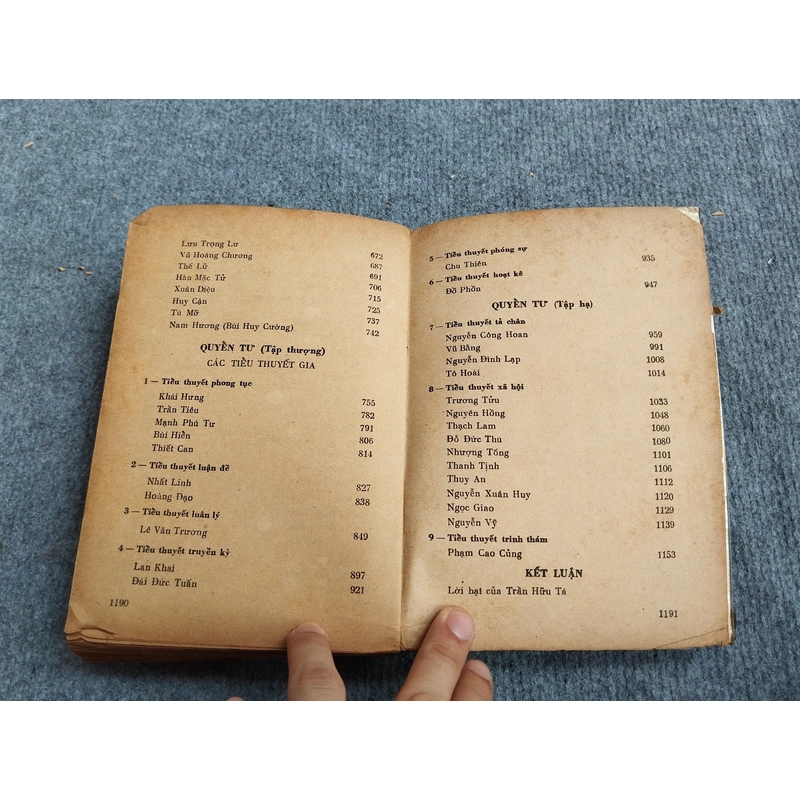 Lưu Trọng Lư
Vũ Hoàng Chương 672
Thế Lữ 687
Hàn Mặc Tử 691
Xuân Diệu 706
Huy Cận 715
Tú Mỡ 725
737
Nam Hương (Bùi Huy Cường) 742
QUYỂN TƯ (Tập thượng)
CÁC TIỂU THUYẾT GIA
1 — Tiểu thuyết phong tục
Khái Hưng 755
Trần Tiêu 782
Mạnh Phú Tư 791
Bùi Hiển 806
Thiết Can 814
2 — Tiểu thuyết luận đề
Nhất Linh 827
Hoàng Đạo 838
3 — Tiểu thuyết luân lý
Lê Văn Trương 849
4 — Tiểu thuyết truyền kỳ
Lan Khai 897
Đái Đức Tuấn 921
1190
5 — Tiểu thuyết phóng sự
Chu Thiên 935
6 — Tiểu thuyết hoạt kê
Đồ Phồn 947
QUYỂN TƯ (Tập hạ)
7 — Tiểu thuyết tả chân
Nguyễn Công Hoan 959
Vũ Bằng 991
Nguyễn Đình Lạp 1008
Tô Hoài 1014
8 — Tiểu thuyết xã hội
Trương Tửu 1033
Nguyên Hồng 1048
Thạch Lam 1060
Đỗ Đức Thu 1080
Nhượng Tống 1101
Thanh Tịnh 1106
Thuy An 1112
Nguyễn Xuân Huy 1120
Ngọc Giao 1129
Nguyễn Vỹ 1139
9 — Tiểu thuyết trinh thám
Phạm Cao Củng 1153
KẾT LUẬN
Lời bạt của Trần Hữu Tá
1191